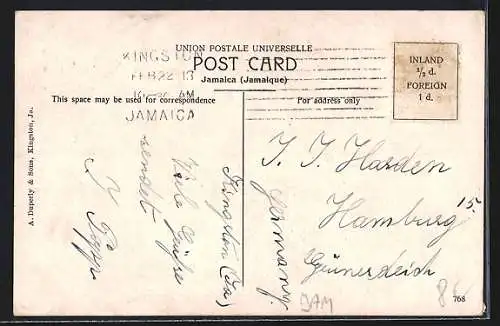 UNION POSTALE UNIVERSELLE
POST CARD
Jamaica (Jamaique)
KINGSTON
FEB 22 13
AM
JAMAICA
INLAND
½ d.
FOREIGN
1 d.
This space may be used for correspondence
For address only
A. Duperly & Sons, Kingston, Ja.
Kingston (Ja)
Viele Grüße
sendet
Harden
Hamburg 15.
Germany.
JAM
768